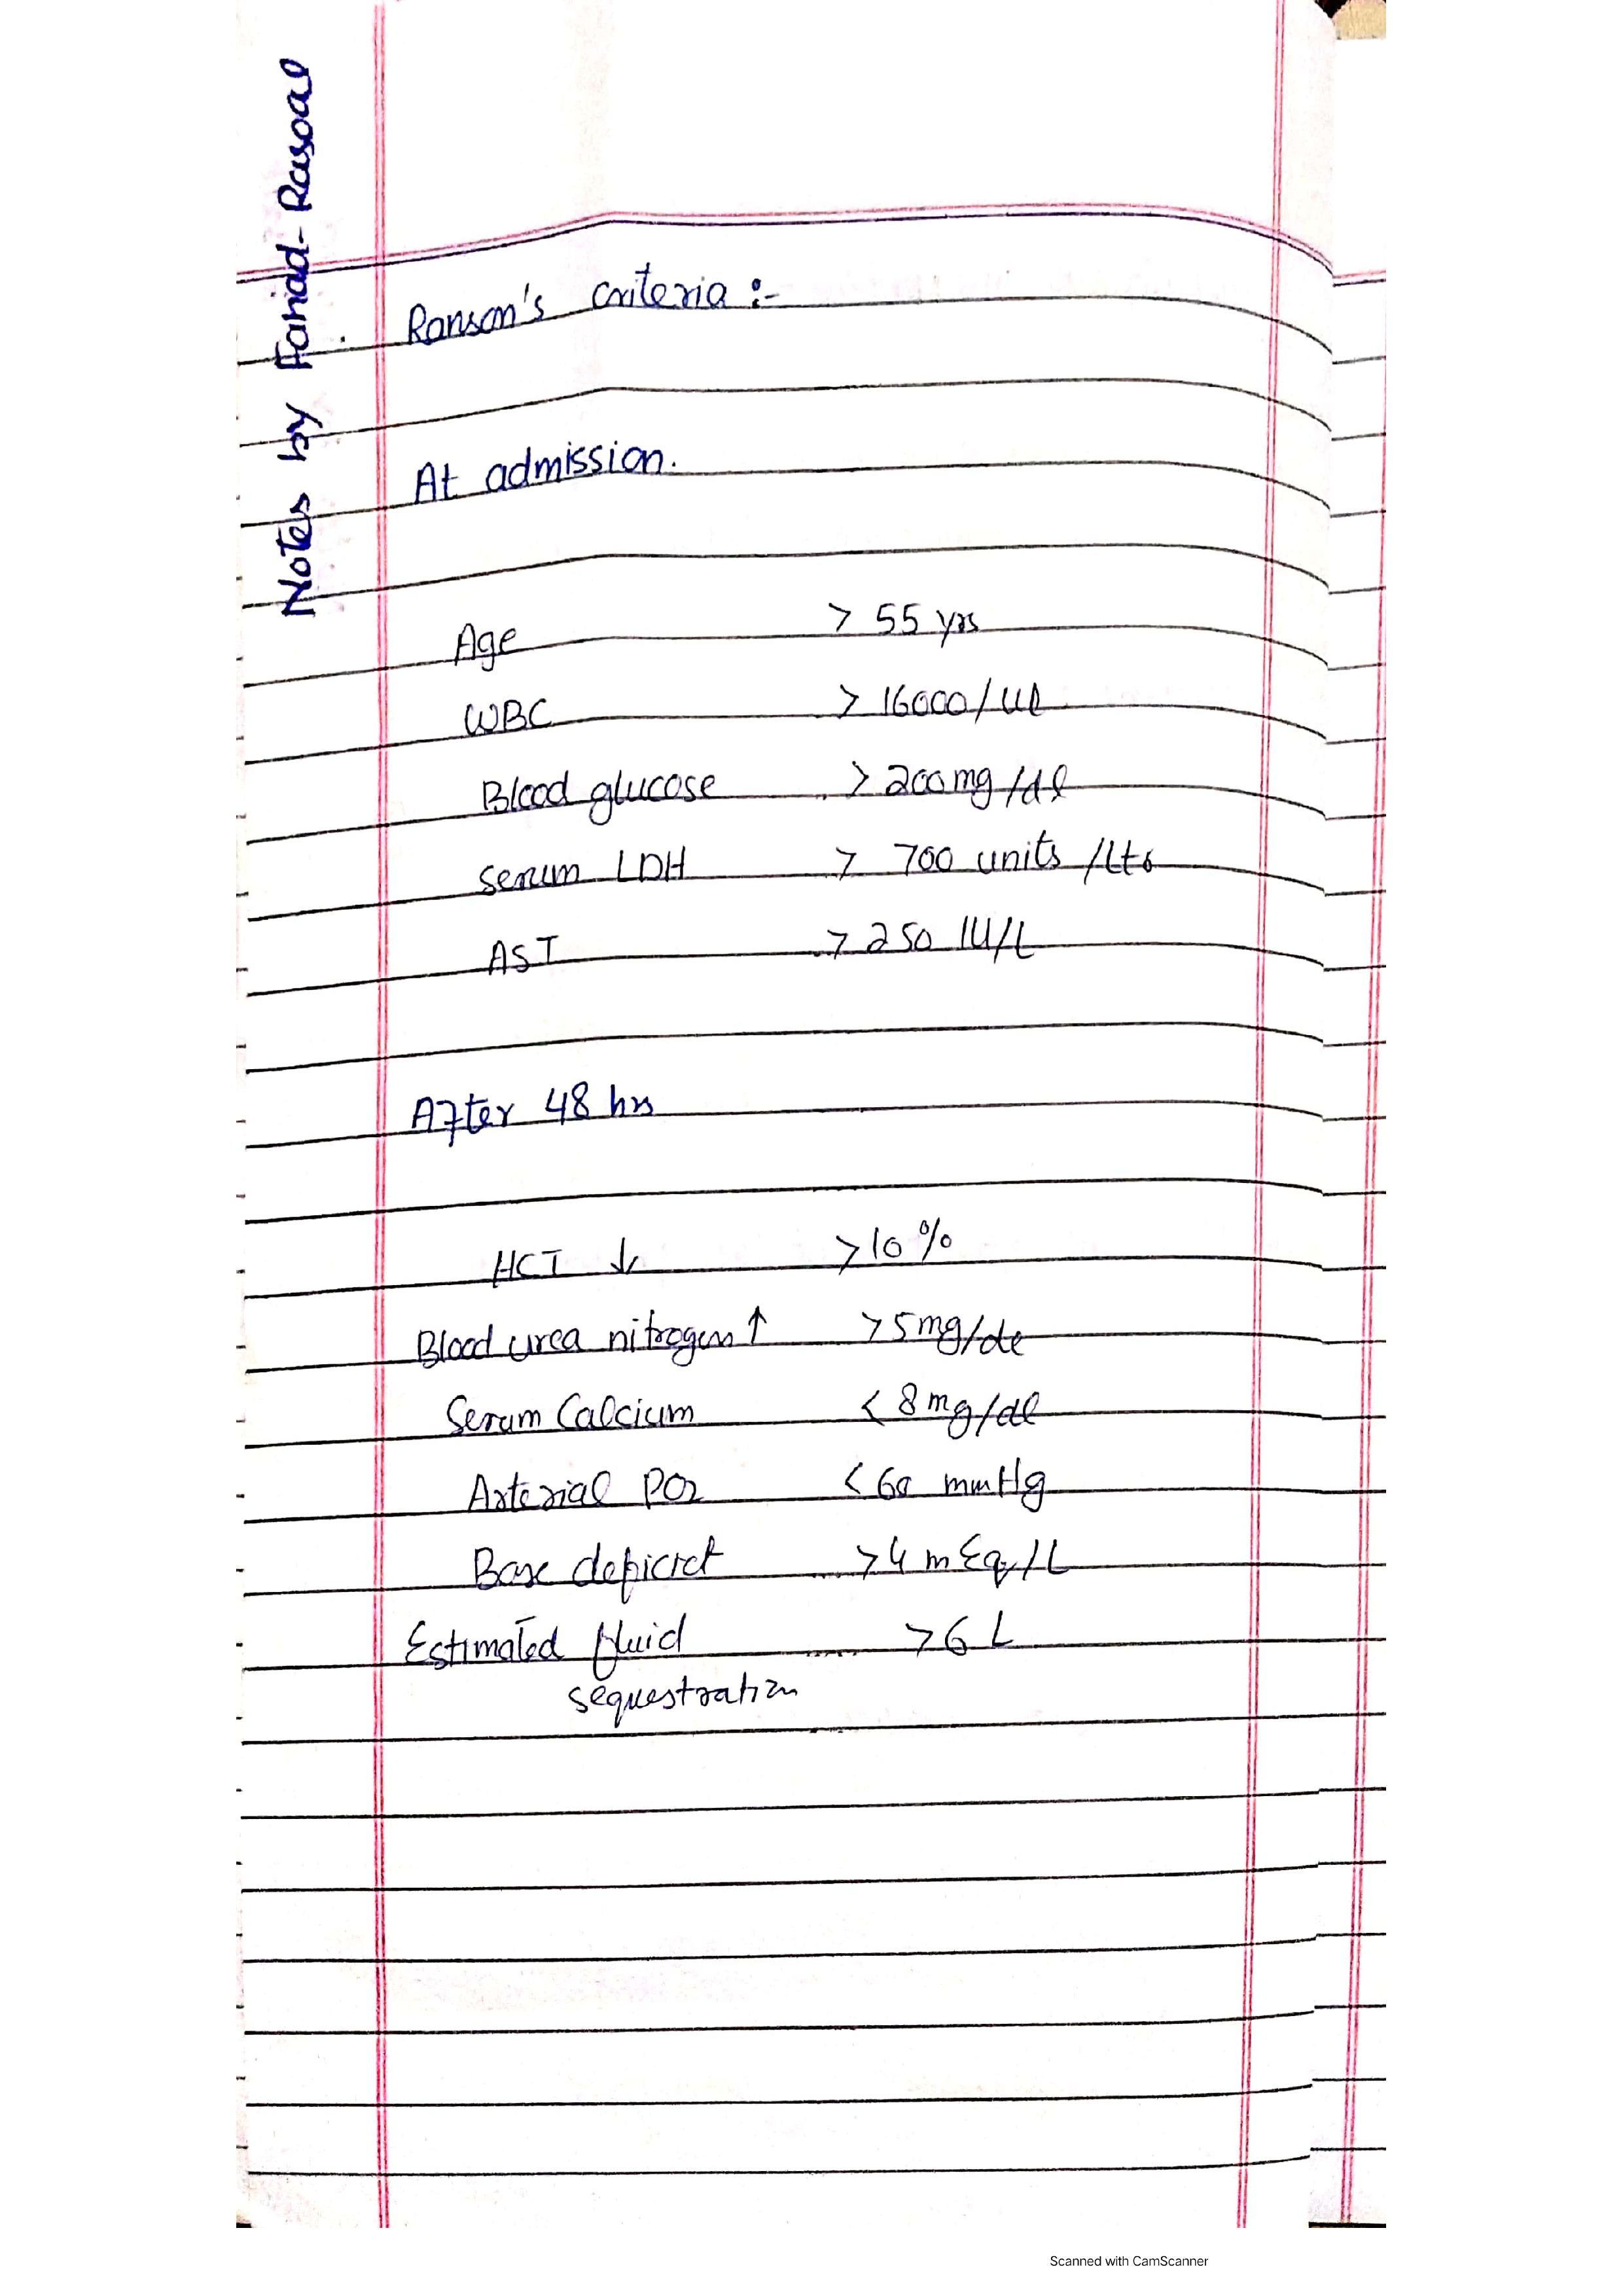 Notes by Fahad-Rasool
Ranson's criteria :-
At admission.
Age > 55 yrs
WBC > 16000/ul
Blood glucose > 200mg/dl
serum LDH > 700 units /Ltr
AST > 250 IU/L
After 48 hrs
HCT ↓ >10%
Blood urea nitrogen ↑ >5mg/dl
Serum Calcium < 8mg/dl
Arterial PO2 < 60 mmHg
Base deficict >4 mEq/L
Estimated fluid >6 L
sequestration
Scanned with CamScanner